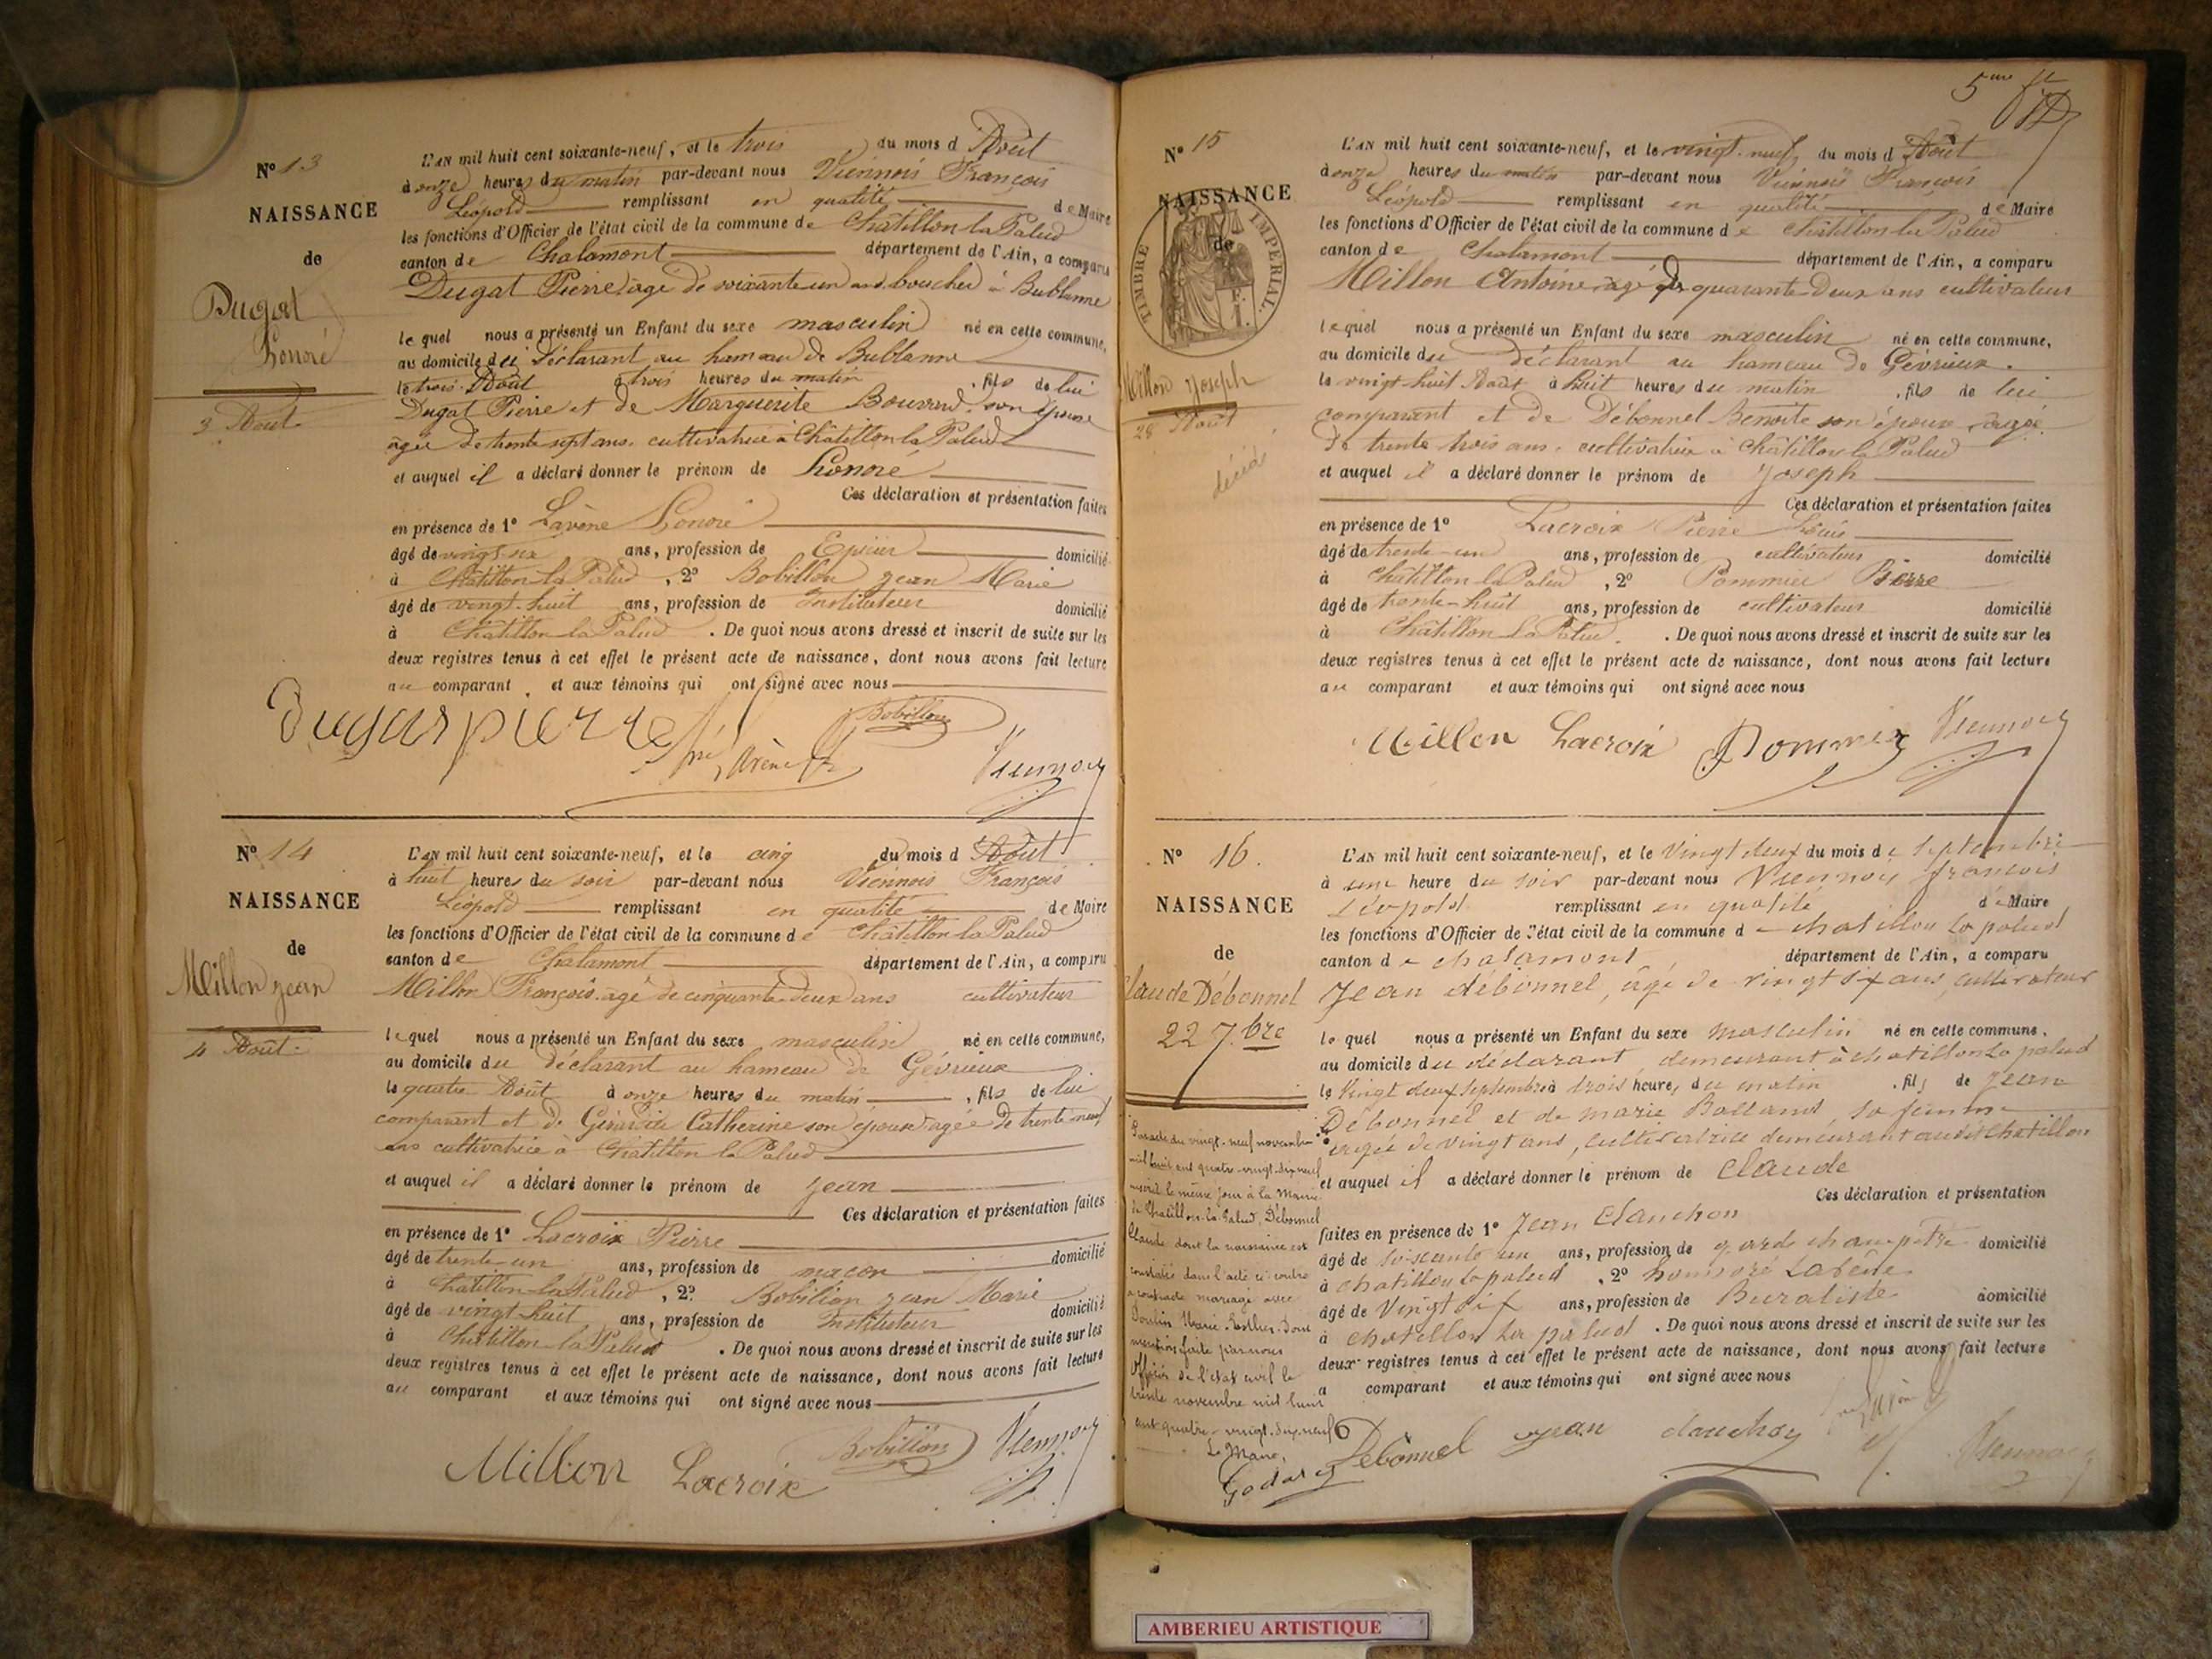 No 13
NAISSANCE
de
Dugat
Honoré
3 Août
L'AN mil huit cent soixante-neuf, et le trois du mois d'Août
à onze heures du matin par-devant nous Viennois François
Léopold remplissant en qualité de Maire
les fonctions d'Officier de l'état civil de la commune de Châtillon la Palud
canton de Chalamont département de l'Ain, a comparu
Dugat Pierre âgé de soixante un ans boucher à Bublanne
lequel nous a présenté un Enfant du sexe masculin né en cette commune,
au domicile du déclarant au hameau de Bublanne
le trois Août à trois heures du matin, fils de lui
Dugat Pierre et de Marguerite Bouvard son épouse
âgée de trente sept ans cultivatrice à Châtillon la Palud
et auquel il a déclaré donner le prénom de Honoré
Ces déclaration et présentation faites
en présence de 1o Lavène Honoré
âgé de vingt-six ans, profession de Epicier domicilié
à Châtillon la Palud, 2o Bobillon Jean Marie
âgé de vingt-huit ans, profession de Instituteur domicilié
à Châtillon la Palud. De quoi nous avons dressé et inscrit de suite sur les
deux registres tenus à cet effet le présent acte de naissance, dont nous avons fait lecture
au comparant et aux témoins qui ont signé avec nous
Bobillon
Viennois
No 14
NAISSANCE
de
Millon Jean
4 Août
L'AN mil huit cent soixante-neuf, et le cinq du mois d'Août
à huit heures du soir par-devant nous Viennois François
Léopold remplissant en qualité de Maire
les fonctions d'Officier de l'état civil de la commune de Châtillon la Palud
canton de Chalamont département de l'Ain, a comparu
Millon François âgé de cinquante-deux ans cultivateur
lequel nous a présenté un Enfant du sexe masculin né en cette commune,
au domicile du déclarant au hameau de Gévrieux
le quatre Août à onze heures du matin, fils de lui
comparant et de Catherine son épouse âgée de trente-neuf
ans cultivatrice à Châtillon la Palud
et auquel il a déclaré donner le prénom de Jean
Ces déclaration et présentation faites
en présence de 1o Lacroix Pierre
âgé de trente-un ans, profession de maçon domicilié
à Châtillon la Palud, 2o Bobillon Jean Marie
âgé de vingt-huit ans, profession de Instituteur domicilié
à Châtillon la Palud. De quoi nous avons dressé et inscrit de suite sur les
deux registres tenus à cet effet le présent acte de naissance, dont nous avons fait lecture
au comparant et aux témoins qui ont signé avec nous
Millon Lacroix Bobillon Viennois
5me ft
No 15
NAISSANCE
de
TIMBRE IMPERIAL
Millon Joseph
28 Août
décédé
L'AN mil huit cent soixante-neuf, et le vingt-neuf du mois d'Août
à onze heures du matin par-devant nous Viennois François
Léopold remplissant en qualité de Maire
les fonctions d'Officier de l'état civil de la commune de Châtillon la Palud
canton de Chalamont département de l'Ain, a comparu
Millon Antoine âgé de quarante-deux ans cultivateur
lequel nous a présenté un Enfant du sexe masculin né en cette commune,
au domicile du déclarant au hameau de Gévrieux.
le vingt huit Août à huit heures du matin, fils de lui
comparant et de Débonnel Benoite son épouse âgée
de trente trois ans, cultivatrice à Châtillon la Palud
et auquel il a déclaré donner le prénom de Joseph
Ces déclaration et présentation faites
en présence de 1o Lacroix Pierre Louis
âgé de trente-un ans, profession de cultivateur domicilié
à Châtillon la Palud, 2o Pommier Pierre
âgé de trente-huit ans, profession de cultivateur domicilié
à Châtillon la Palud. De quoi nous avons dressé et inscrit de suite sur les
deux registres tenus à cet effet le présent acte de naissance, dont nous avons fait lecture
au comparant et aux témoins qui ont signé avec nous
Millon Lacroix Pommier Viennois
No 16.
NAISSANCE
de
Claude Débonnel
22 7.bre
L'AN mil huit cent soixante-neuf, et le Vingt deux du mois de Septembre
à une heure du soir par-devant nous Viennois françois
Léopold remplissant en qualité de Maire
les fonctions d'Officier de l'état civil de la commune de chatillon la palud
canton de chalamont département de l'Ain, a comparu
Jean débonnel, âgé de vingt six ans, cultivateur
lequel nous a présenté un Enfant du sexe masculin né en cette commune.
au domicile du déclarant, demeurant à chatillon la palud
le Vingt deux Septembre à trois heures du matin, fils de Jean
Débonnel et de marie Balland, sa femme
âgée de vingt ans, cultivatrice demeurant audit chatillon
et auquel il a déclaré donner le prénom de Claude
Ces déclaration et présentation
faites en présence de 1o Jean Clanchon
âgé de soixante un ans, profession de garde champêtre domicilié
à chatillon la palud, 2o honnoré Lavène
âgé de Vingt six ans, profession de Buraliste domicilié
à chatillon la palud. De quoi nous avons dressé et inscrit de suite sur les
deux registres tenus à cet effet le présent acte de naissance, dont nous avons fait lecture
a comparant et aux témoins qui ont signé avec nous
Par acte du vingt-neuf novembre
mil huit cent quatre-vingt-dix-neuf
inscrit le même jour à la Mairie
de Chatillon-la-Palud, Débonnel
Claude dont la naissance est
constatée dans l'acte ci-contre
a contracté mariage avec
Marie-Esther. Dont
mention faite par nous
Officier de l'état civil le
trente novembre mil huit
cent quatre-vingt-dix-neuf
Le Maire,
Godard
Débonnel jean clanchon
Viennois
AMBERIEU ARTISTIQUE